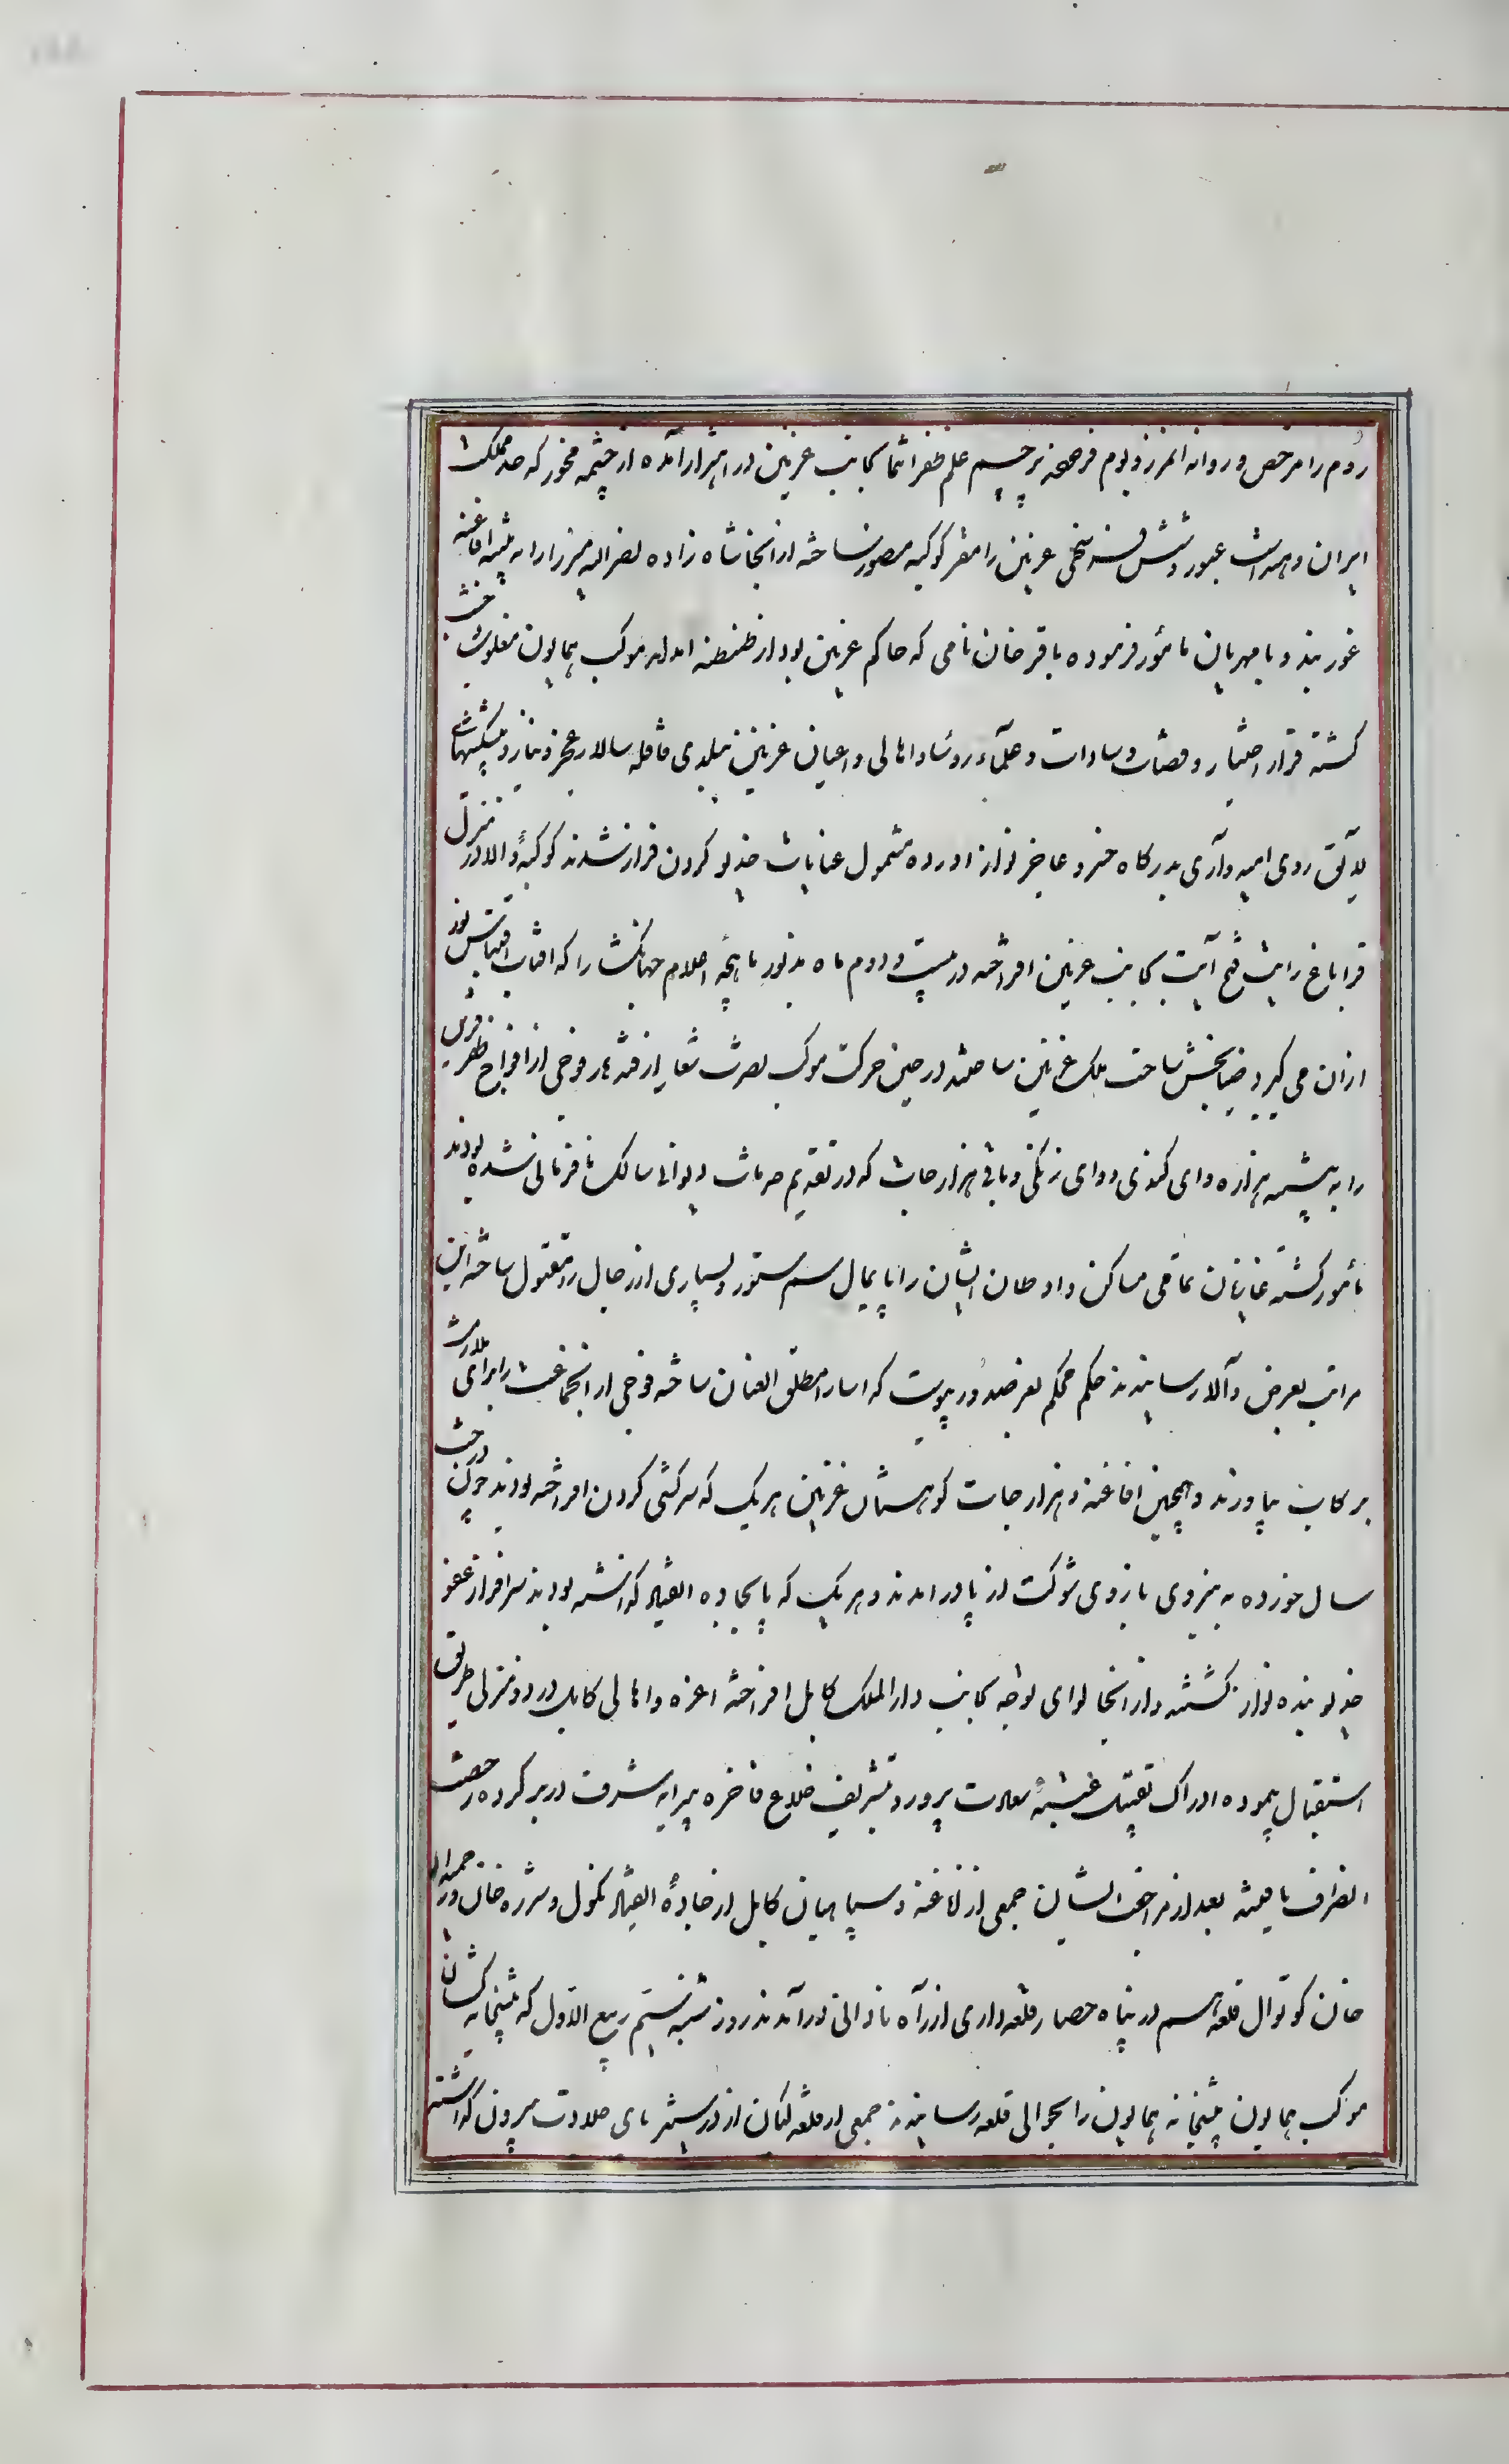 روم را مرخص و روانه المرز و بوم فرموده پرچم علم ظفر انتما بجانب غزنین در اهتزاز آمده از چشمه مخور که حد مملکت
ایران و هند است عبور و شش فرسخی غزنین را مقر کوکبه منصور ساخته از آنجا شاه زاده نصراله میرزا را به تنبیه افاغنه
غوربند و بامیان مأمور فرموده باقر خان نامی که حاکم غزنین بود از طنطنه موکب همایون مغلوب وحشت
گشته فرار اختیار و قضات و سادات و علمآء و رؤسا و اهالی و اعیان غزنین ببلدی قافله سالار عجز و نیاز و پیشکشهای
لایق روی امیدواری بدرگاه خسرو عاجز نواز آورده مشمول عنایات خدیو گردن فراز شدند کوکبهٔ والا در منزل
قراباغ رایت فتح آیت بجانب غزنین افراخته در بیست و دوم ماه مذکور ماهچه اعلام جهانگشا را که افتاب اقتباس نور
ازان می گیرد ضیابخش ساحت ملک غزنین ساختند در حین حرکت موکب نصرت شعار از قندهار فوجی از افواج ظفر قرین
را به تنبیه هزاره دای کندی و دای زنگی و باقی هزارجات که در تقدیم خدمات دیوانی سالک نافرمانی شده بودند
مأمور گشته غازیان تمامی مساکن و اوطان ایشان را پایمال سم ستور و بسیاری از رجال را مقتول ساخته این
مراتب بعرض والا رسانیدند حکم محکم بعز صدور پیوست که اسارا مطلق العنان ساخته فوجی از آنجماعت را برای ملازمت
برکاب بیاورند و همچنین افاغنه و هزارجات کوهستان غزنین هر یک که سرکشی گردن افراخته بودند چون درخت
سال خورده به نیروی بازوی شوکت از پا درامدند و هر یک که پا بجاده انقیاد گذاشته بودند سرافراز عفو
خدیو بنده نواز گشتند و از انجا لوای توجه بجانب دارالملک کابل افراخته اعزه و اهالی کابل در دو منزلی طریق
استقبال پیموده ادراک تقبیل عتبهٔ سعادت پرور و تشریف خلاع فاخره پیرایه شرف در بر کرده رخصت
انصراف یافتند بعد از مراجعت ایشان جمعی از افاغنه و سپاهیان کابل از جادهٔ انقیاد نکول و شرزه خان و رحیمداد
خان کوتوال قلعه هم در پناه حصار قلعه داری از راه نادانی درآمدند روز شنبه ربیع الاول که پیشخانه کشان
موکب همایون پیشخانه همایون را بحوالی قلعه رسانیدند جمعی از قلعه کیان از در ستیز پای جلادت بیرون گذاشته